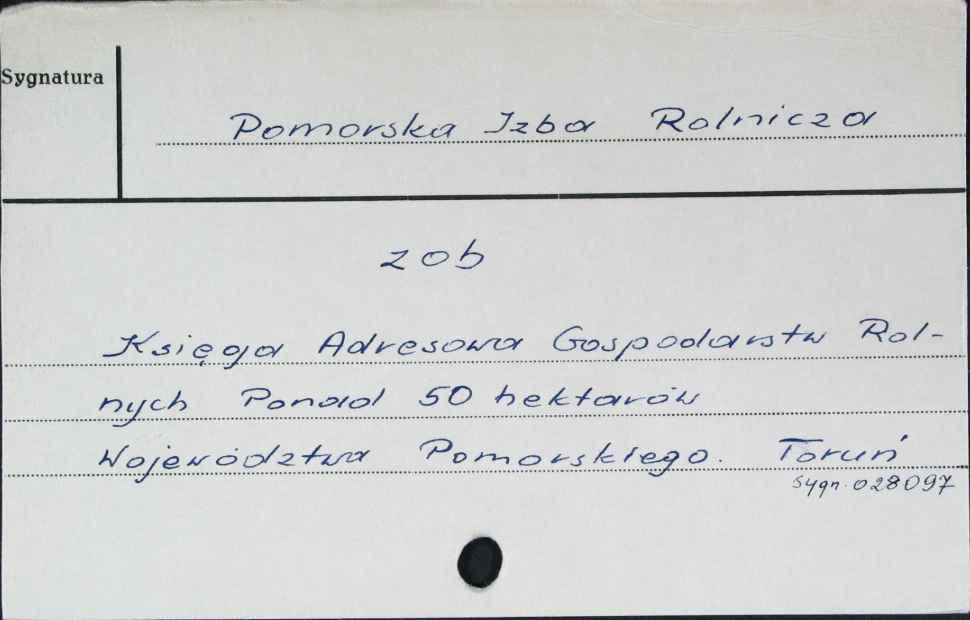 Sygnatura
Pomorska Izba Rolnicza
zob
Księga Adresowa Gospodarstw Rol-
nych Ponad 50 hektarów
Województwa Pomorskiego. Toruń
sygn. 028097